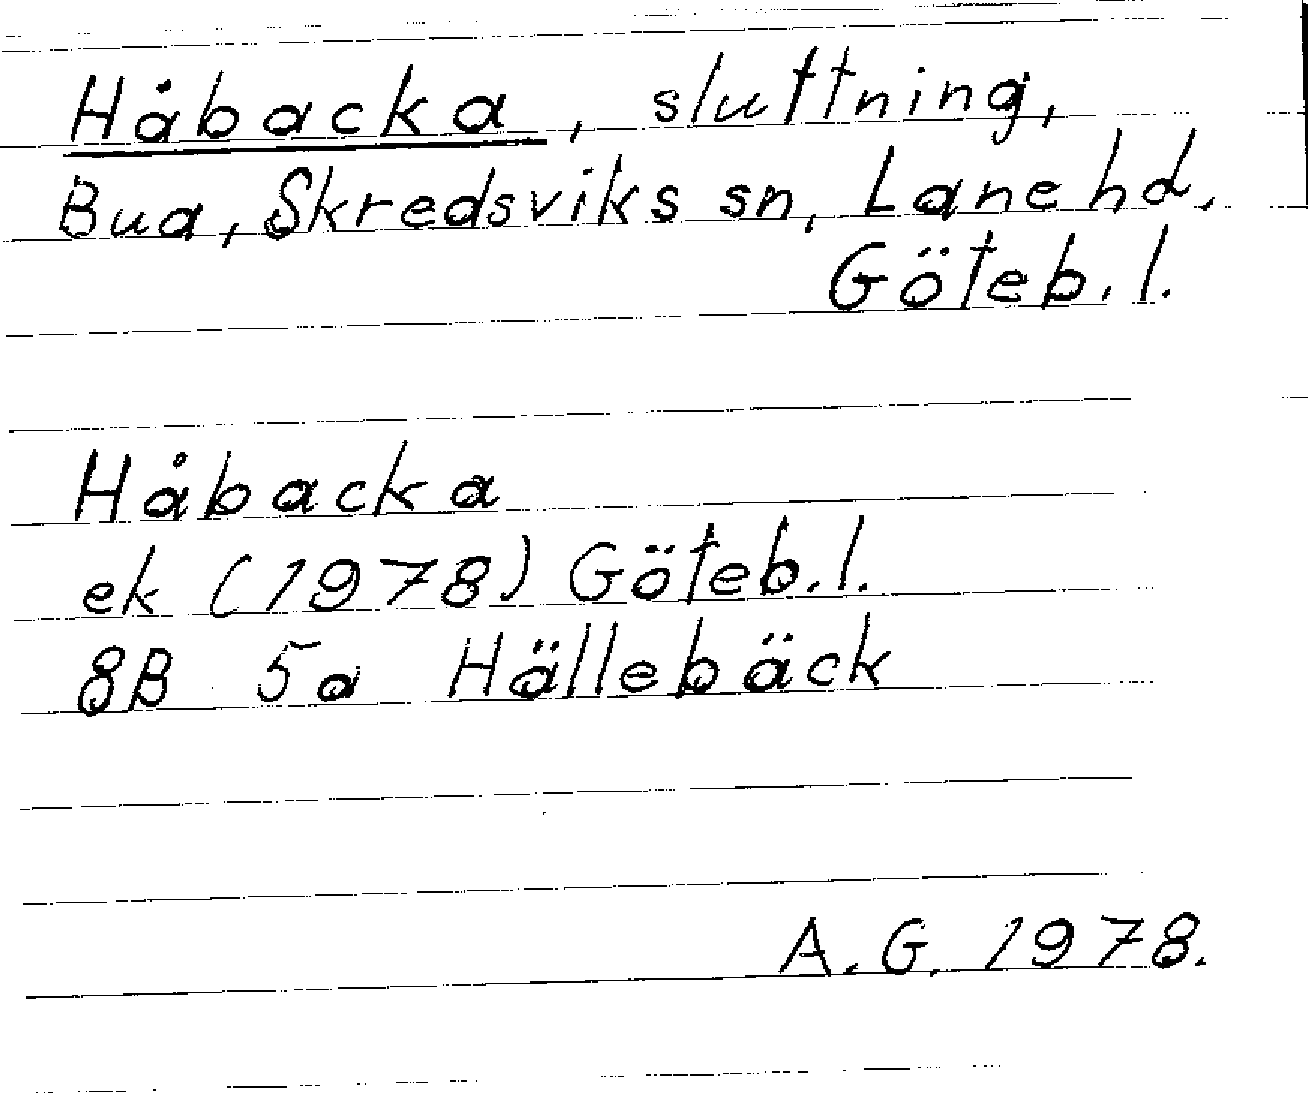 Håbacka, sluttning,
Bua, Skredsviks sn, Lane hd,
Göteb. l.
Håbacka
ek (1978) Göteb. l.
8B 5a Hällebäck
A. G. 1978.